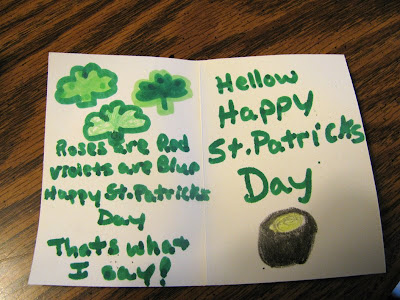 Roses are Red
violets are Blue
Happy St. Patricks
Day
Thats what
I say!
Hellow
Happy
St. Patricks
Day